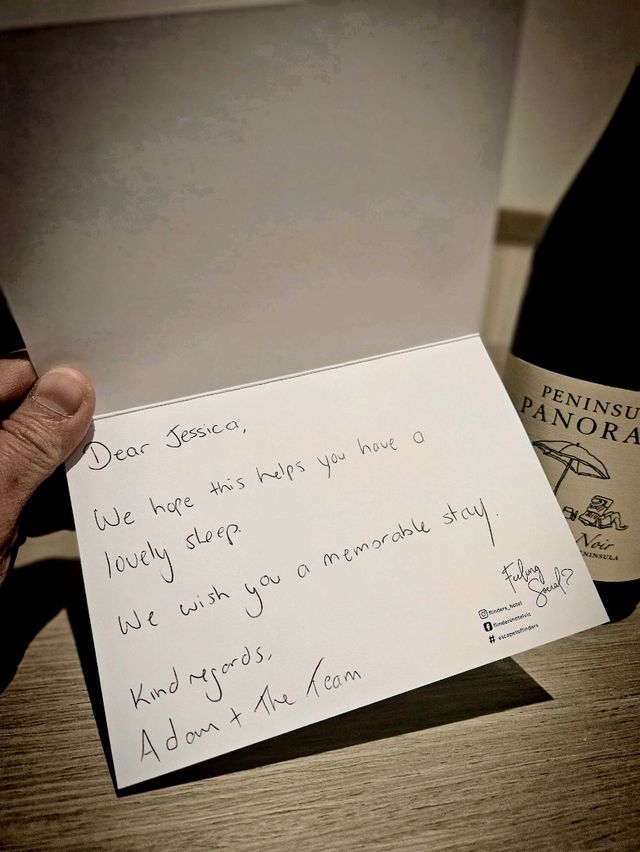 Dear Jessica,
We hope this helps you have a
lovely sleep.
We wish you a memorable stay.
Kind regards,
Adam + The Team
Feeling
Social?
flinders_hotel
flindershotelvic
# escapetoflinders
PENINSU
PANORA
Noir
NINSULA